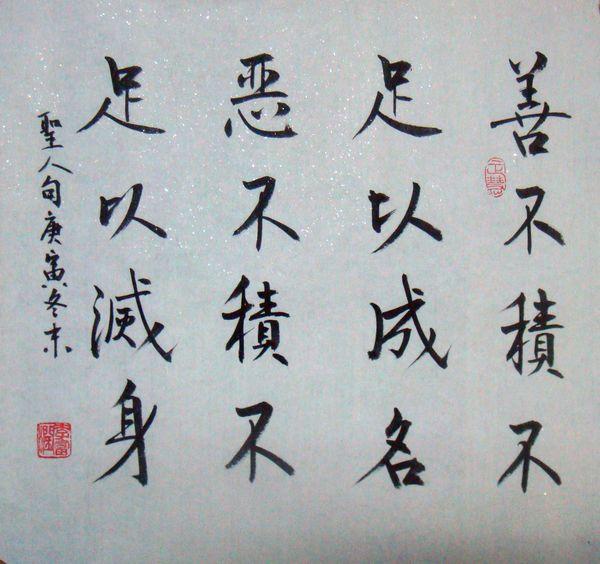 善不積不
足以成名
恶不積不
足以滅身
聖人句庚寅冬末